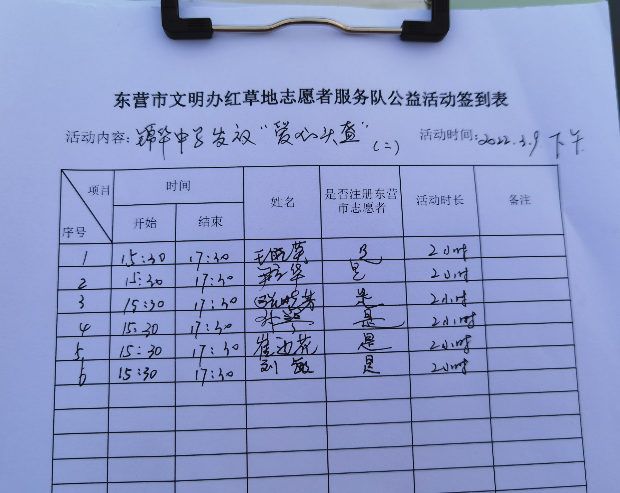 东营市文明办红草地志愿者服务队公益活动签到表
活动内容: 锦华中学发放“爱心头盔”(二) 活动时间: 2022.3.9 下午
项目 时间 姓名 是否注册东营市志愿者 活动时长 备注
序号 开始 结束
1 15:30 17:30 是 2小时
2 15:30 17:30 是 2小时
3 15:30 17:30 是 2小时
4 15:30 17:30 是 2小时
5 15:30 17:30 崔 花 是 2小时
6 15:30 17:30 刘敏 是 2小时